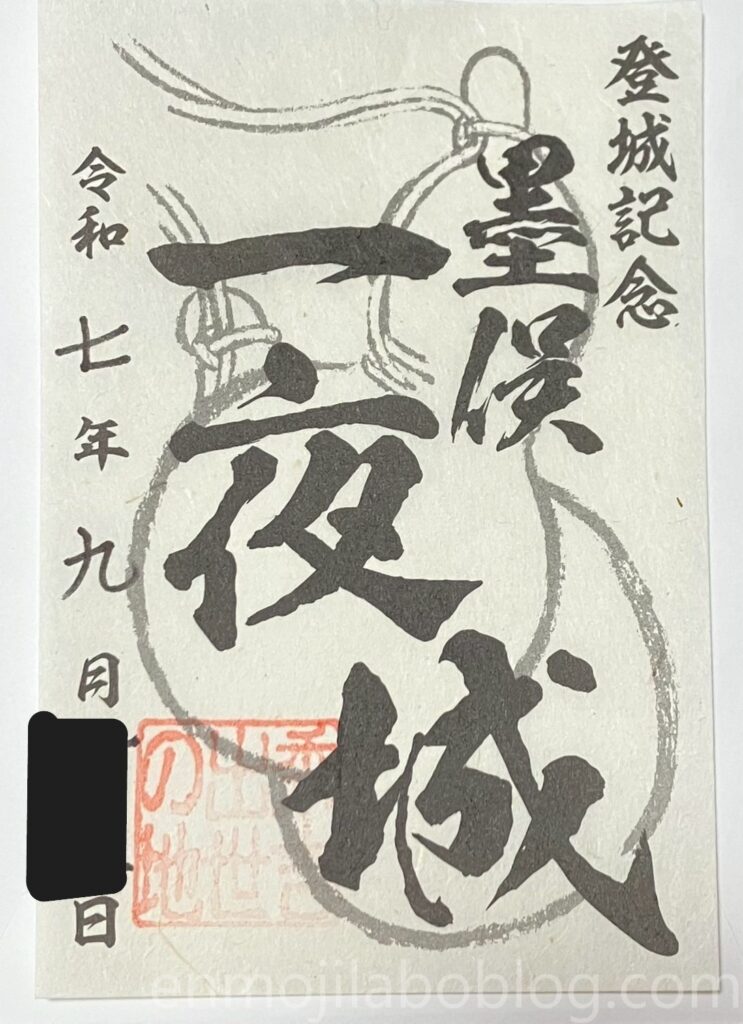 登城記念
墨俣
一夜城
令和 七年 九月 日
秀吉
出世
の地
enmojilaboblog.com